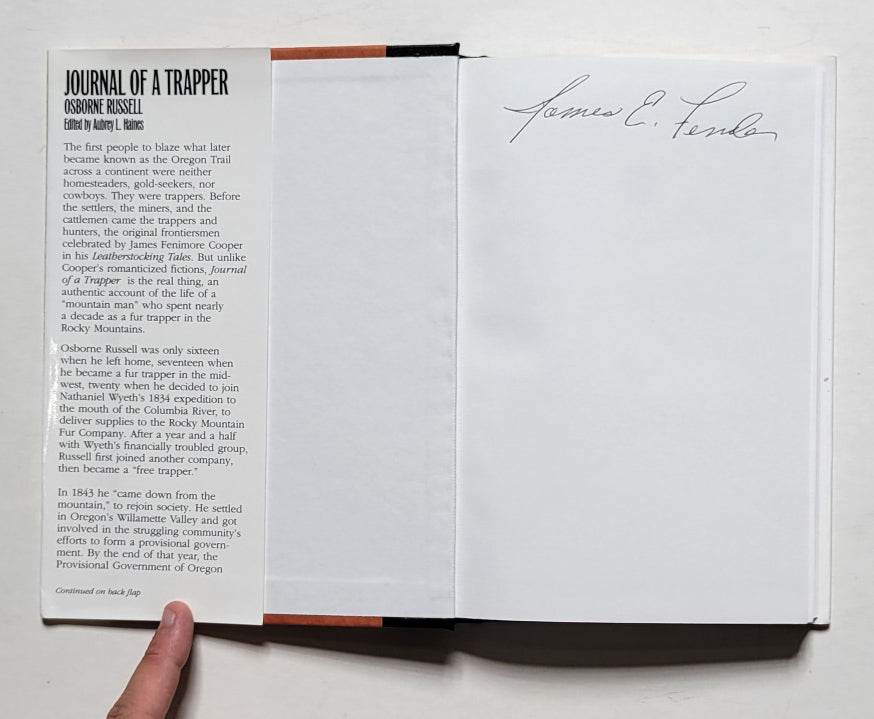 JOURNAL OF A TRAPPER
OSBORNE RUSSELL
Edited by Aubrey L. Haines
The first people to blaze what later
became known as the Oregon Trail
across a continent were neither
homesteaders, gold-seekers, nor
cowboys. They were trappers. Before
the settlers, the miners, and the
cattlemen came the trappers and
hunters, the original frontiersmen
celebrated by James Fenimore Cooper
in his Leatherstocking Tales. But unlike
Cooper's romanticized fictions, Journal
of a Trapper is the real thing, an
authentic account of the life of a
"mountain man" who spent nearly
a decade as a fur trapper in the
Rocky Mountains.
Osborne Russell was only sixteen
when he left home, seventeen when
he became a fur trapper in the mid-
west, twenty when he decided to join
Nathaniel Wyeth's 1834 expedition to
the mouth of the Columbia River, to
deliver supplies to the Rocky Mountain
Fur Company. After a year and a half
with Wyeth's financially troubled group,
Russell first joined another company,
then became a "free trapper."
In 1843 he "came down from the
mountain," to rejoin society. He settled
in Oregon's Willamette Valley and got
involved in the struggling community's
efforts to form a provisional govern-
ment. By the end of that year, the
Provisional Government of Oregon
Continued on back flap
James E.